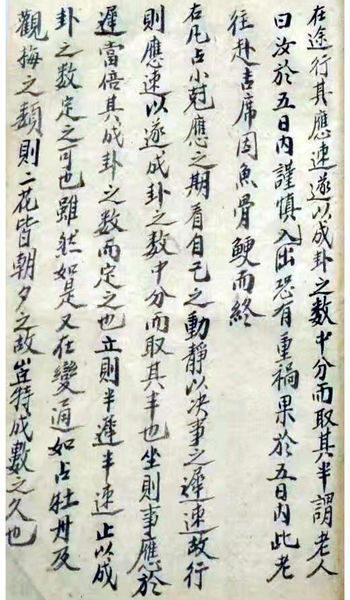 在途行其應速遂以成卦之数中分而取其半謂老人
曰汝於五日内謹慎入出恐有重禍果於五日内此老
徃赴吉席因魚骨鯁而終
右凡占小尅應之期看自己之動靜以决事之遲速故行
則應速以遂成卦之数中分而取其半也坐則事應於
遲當倍其成卦之数而定之也立則半遲半速止以成
卦之数定之可也雖然如是又在變通如占牡丹及
觀梅之類則二花皆朝夕之故豈特成數之久也